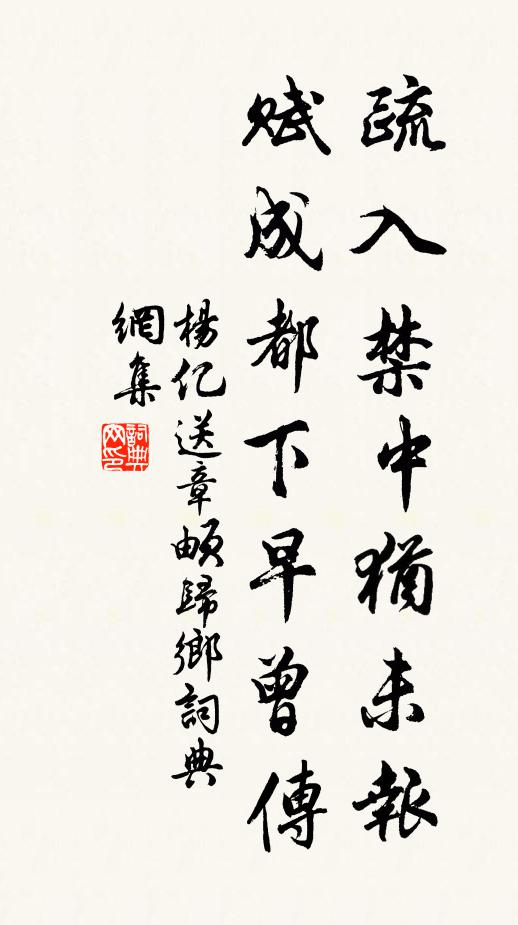 疏入禁中猶未報
賦成都下早曾傳
楊亿送章頔歸鄉詞典
網集
詞典
网印